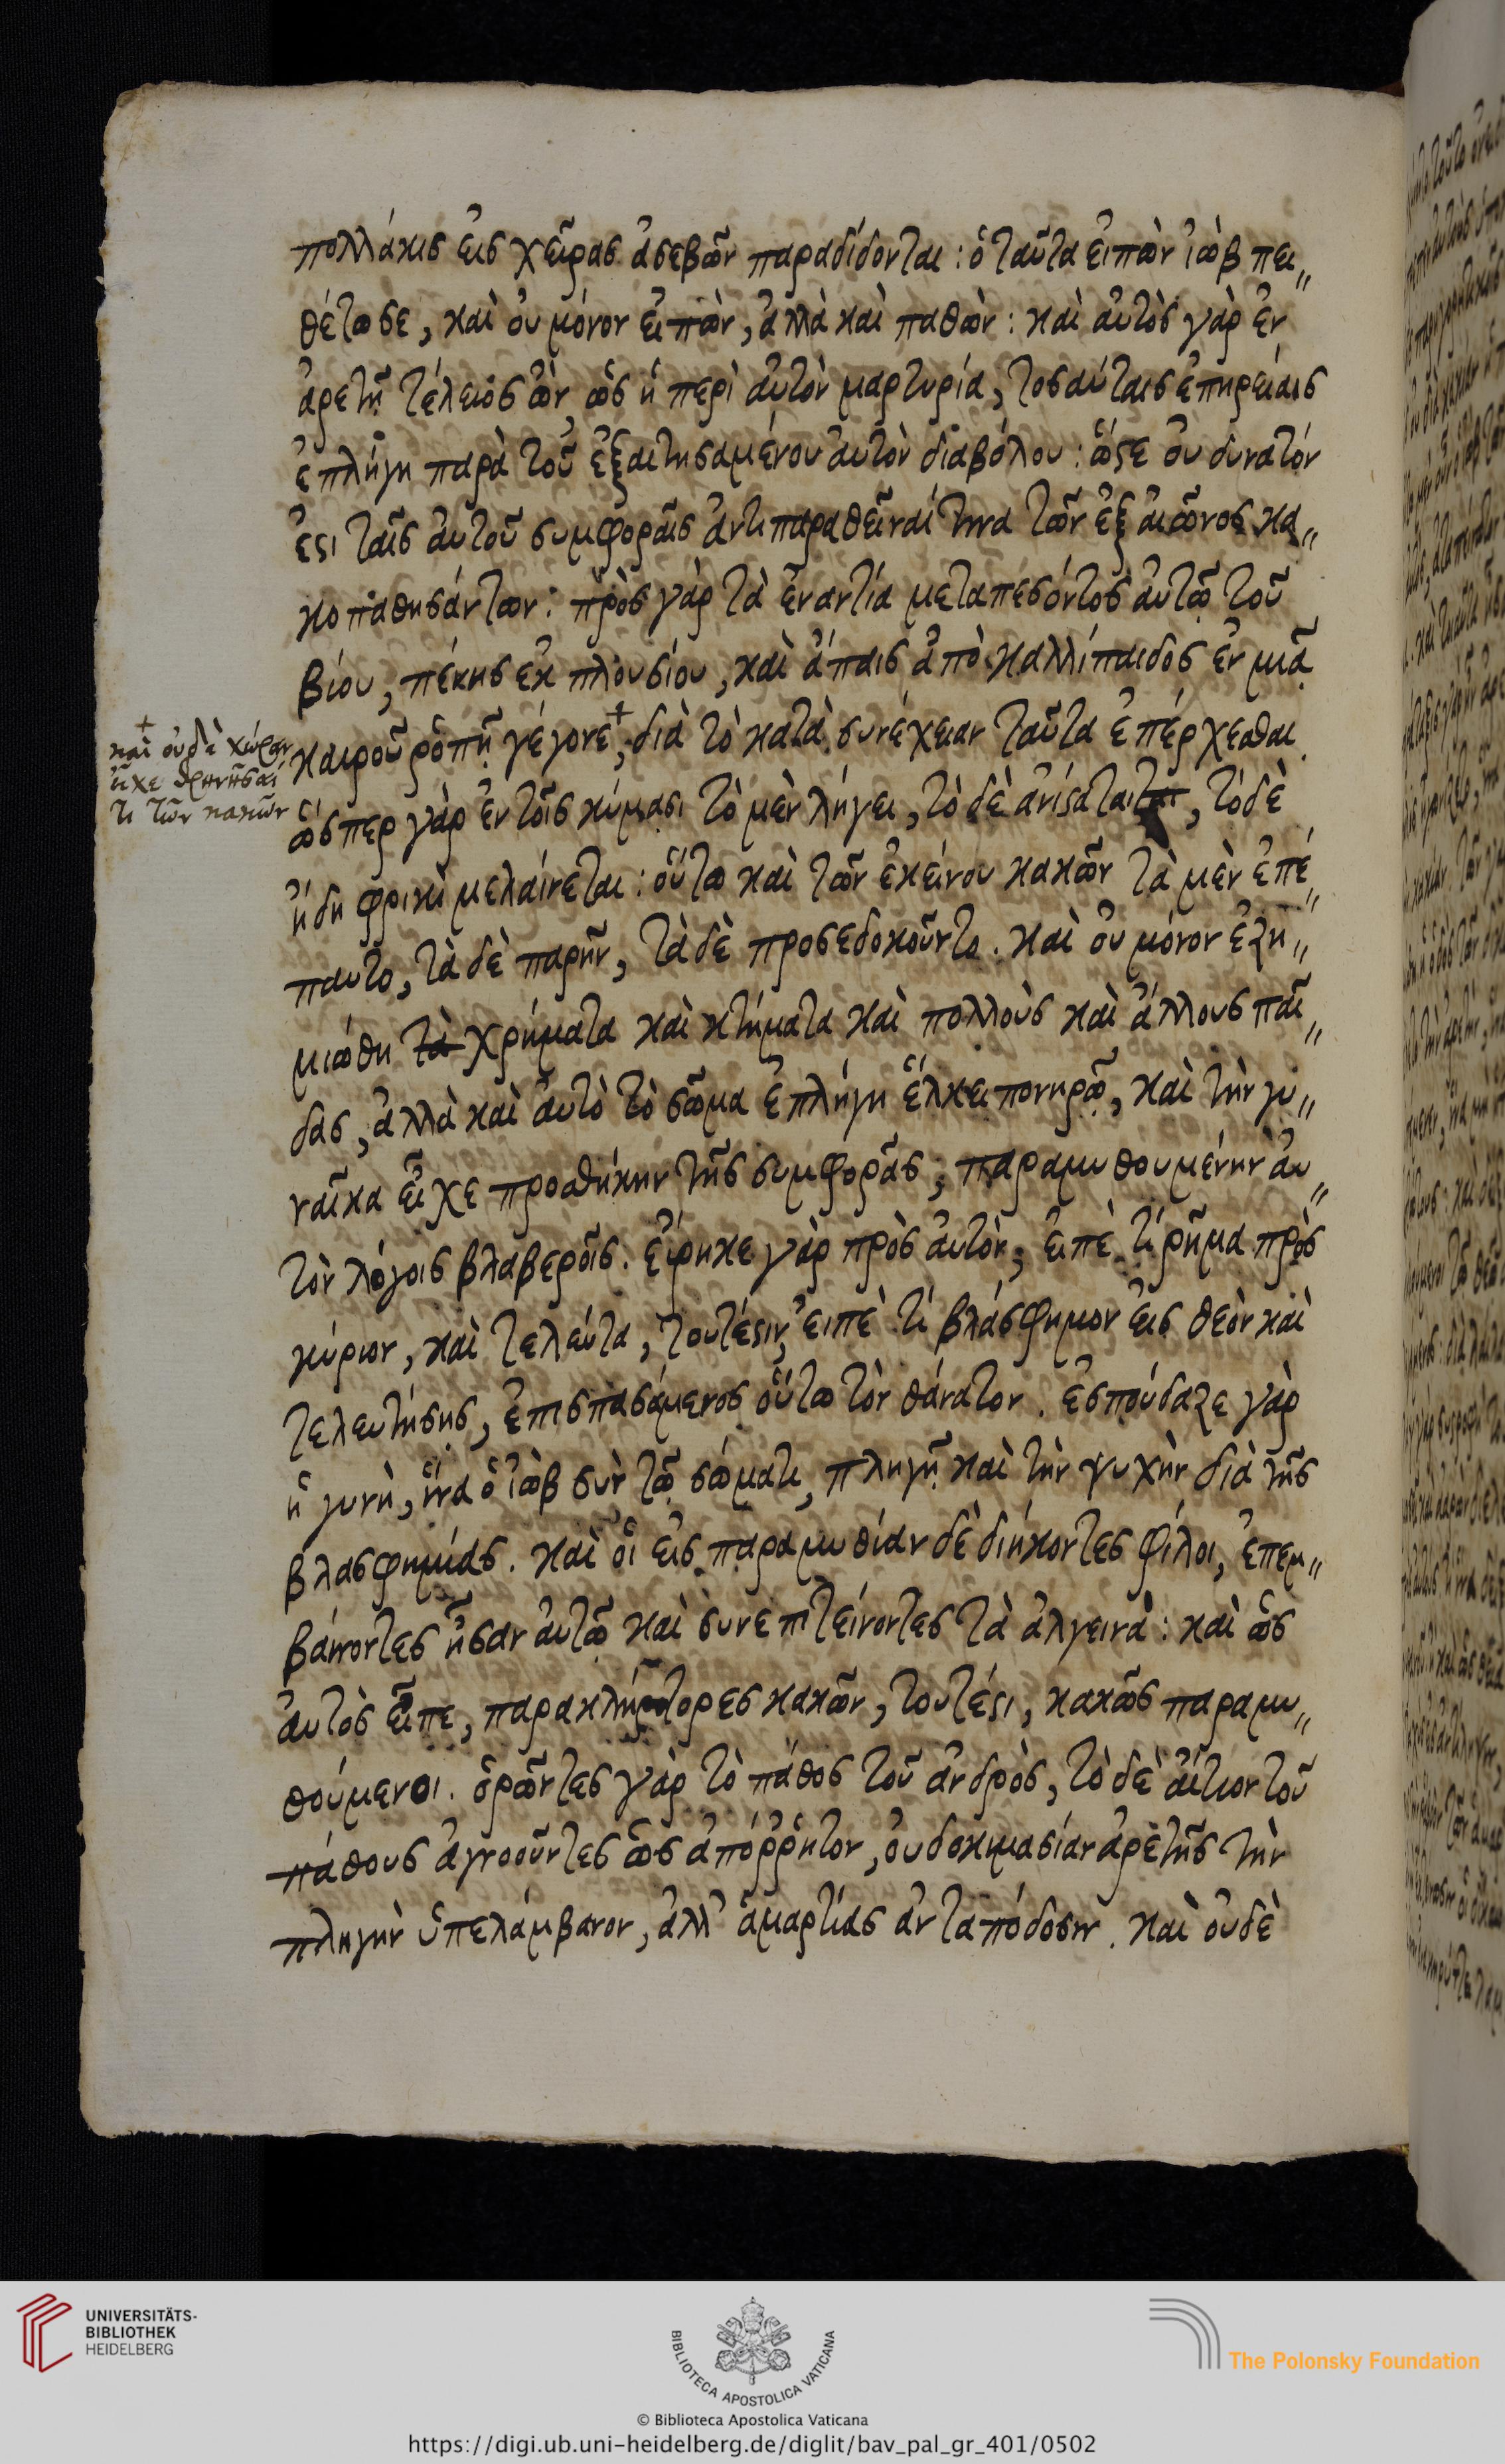 πολλάκις εἰς χεῖρας ἀσεβῶν παραδίδονται : ὁ ταῦτα εἰπὼν ἰὼβ πει„
θέτω σε, καὶ οὐ μόνον εἰπὼν, ἀλλὰ καὶ παθὼν : καὶ αὐτὸς γὰρ ἐν
ἀρετῇ τέλειος ὢν ὡς ἡ περὶ αὐτὸν μαρτυρία, τοσαύταις ἐπηρείαις
ἐπλήγη παρὰ τοῦ ἐξαιτησαμένου αὐτὸν διαβόλου : ὥςε οὐ δυνατόν
ἐςι ταῖς αὐτοῦ συμφοραῖς ἀντιπαραθεῖναί τινα τῶν ἐξ αἰῶνος κα„
κοπαθησάντων : πρὸς γὰρ τὰ ἐναντία μεταπεσόντος αὐτῷ τοῦ
βίου, πένης ἐκ πλουσίου, καὶ ἄπαις ἀπὸ καλλίπαιδος ἐν μιᾷ
καιροῦ ῥοπῇ γέγονε+, διὰ τὸ κατὰ συνέχειαν ταῦτα ἐπέρχεσθαι
+
καὶ οὐδὲ χώραν
εἶχε θρηνῆσαί
τι τῶν κακῶν
ὥσπερ γὰρ ἐν τοῖς κύμασι τὸ μὲν λήγει, τὸ δὲ ἀνίςαται, τὸ δὲ
ἤδη φρικὶ μελαίνεται : οὕτω καὶ τῶν ἐκείνου κακῶν τὰ μὲν ἐπέ„
παυτο, τὰ δὲ παρῆν, τὰ δὲ προσεδοκοῦντο. καὶ οὐ μόνον ἐζη„
μιώθη τὰ χρήματα καὶ κτήματα καὶ πολλοὺς καὶ ἄλλους παῖ„
δας, ἀλλὰ καὶ αὐτὸ τὸ σῶμα ἐπλήγη ἕλκει πονηρῷ, καὶ τὴν γυ„
ναῖκα εἶχε προσθήκην τῆς συμφορᾶς, παραμυθουμένην αὐ„
τὸν λόγοις βλαβεροῖς. εἴρηκε γὰρ πρὸς αὐτὸν, εἰπὲ τί ῥῆμα πρὸς
κύριον, καὶ τελεύτα, τουτέςιν, εἰπὲ τί βλάσφημον εἰς θεὸν καὶ
τελευτήσης, ἐπισπασάμενος οὕτω τὸν θάνατον. ἐσπούδαζε γὰρ
ἡ γυνὴ, ἵνα ὁ ἰὼβ σὺν τῷ σώματι, πληγῇ καὶ τὴν ψυχὴν διὰ τῆς
βλασφημίας. καὶ οἱ εἰς παραμυθίαν δὲ διήκοντες φίλοι, ἐπεμ„
βάινοντες ἦσαν αὐτῷ καὶ συνεπιτείνοντες τὰ ἀλγεινὰ : καὶ ὡς
αὐτὸς εἶπε, παρακλήτορες κακῶν, τουτέςι, κακῶς παραμυ„
θούμενοι. ὁρῶντες γὰρ τὸ πάθος τοῦ ἀνδρὸς, τὸ δὲ αἴτιον τοῦ
πάθους ἀγνοοῦντες ὡς ἀπόῤῥητον, οὐ δοκιμασίαν ἀρετῆς τὴν
πληγὴν ὑπελάμβανον, ἀλλ' ἁμαρτίας ἀνταπόδοσιν. καὶ οὐδὲ
UNIVERSITÄTS-
BIBLIOTHEK
HEIDELBERG
BIBLIOTECA APOSTOLICA VATICANA
The Polonsky Foundation
© Biblioteca Apostolica Vaticana
https://digi.ub.uni-heidelberg.de/diglit/bav_pal_gr_401/0502